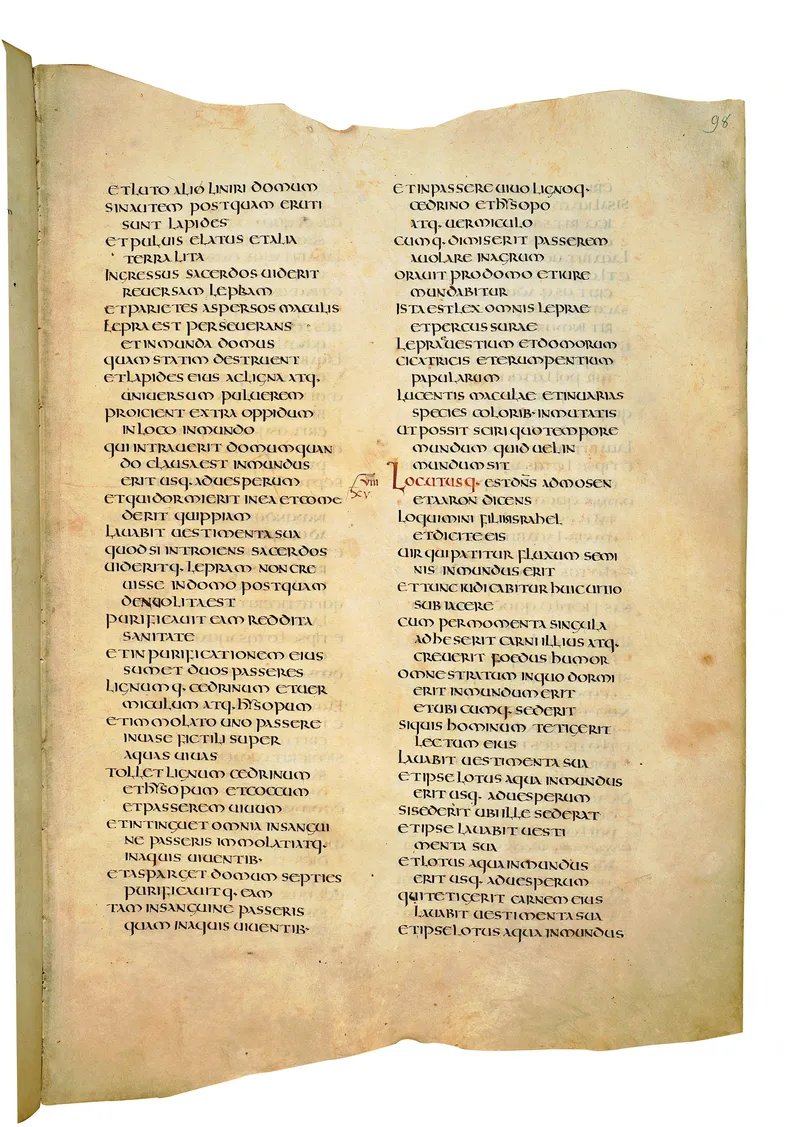 98
ETLUTO ALIO LINIRI DOMUM
SINAUTEM POSTQUAM ERUTI
SUNT LAPIDES
ETPULUIS ELATUS ETALIA
TERRA LITA
INGRESSUS SACERDOS UIDERIT
REUERSAM LEPRAM
ETPARIETES ASPERSOS MACULIS
LEPRA EST PERSEUERANS
ETINMUNDA DOMUS
QUAM STATIM DESTRUENT
ETLAPIDES EIUS ACLIGNA ATQ·
UNIUERSUM PULUEREM
PROICIENT EXTRA OPPIDUM
INLOCO INMUNDO
QUI INTRAUERIT DOMUMQUAN
DO CLAUSAEST INMUNDUS
ERIT USQ· ADUESPERUM
ETQUIDORMIERIT INEA ETCOME
DERIT QUIPPIAM
LAUABIT UESTIMENTASUA
QUODSI INTROIENS SACERDOS
UIDERITQ· LEPRAM NONCRE
UISSE INDOMO POSTQUAM
DENUOLITAEST
PURIFICAUIT EAM REDDITA
SANITATE
ETINPURIFICATIONEM EIUS
SUMET DUOS PASSERES
LIGNUMQ· CEDRINUM ETUER
MICULUM ATQ· HYSOPUM
ETIMMOLATO UNO PASSERE
INUASE FICTILI SUPER
AQUAS UIUAS
TOLLET LIGNUM CEDRINUM
ETHYSOPUM ETCOCCUM
ETPASSEREM UIUUM
ETINTINGUET OMNIA INSANGUI
NE PASSERIS IMMOLATIATQ·
INAQUIS UIUENTIB·
ETASPARGET DOMUM SEPTIES
PURIFICAUITQ· EAM
TAM INSANGUINE PASSERIS
QUAM INAQUIS UIUENTIB·
ETINPASSERE UIUO LIGNOQ·
CEDRINO ETHYSOPO
ATQ· UERMICULO
CUMQ· DIMISERIT PASSEREM
AUOLARE INAGRUM
ORAUIT PRODOMO ETIURE
MUNDABITUR
ISTA EST LEX OMNIS LEPRAE
ETPERCUSSURAE
LEPRAE UESTIUM ETDOMORUM
CICATRICIS ETERUMPENTIUM
PAPULARUM
LUCENTIS MACULAE ETINUARIAS
SPECIES COLORIB· INMUTATIS
UTPOSSIT SCIRI QUOTEMPORE
MUNDUM QUID UELIN
MUNDUM SIT
LOCUTUSQ· ESTDNS ADMOSEN
ETAARON DICENS
LOQUIMINI FILIISISRAHEL
ETDICITE EIS
UIR QUIPATITUR FLUXUM SEMI
NIS INMUNDUS ERIT
ETTUNC IUDICABITUR HUIC UITIO
SUBIACERE
CUM PERMOMENTA SINGULA
ADHESERIT CARNI ILLIUS ATQ·
CREUERIT FOEDUS HUMOR
OMNESTRATUM INQUO DORMI
ERIT INMUNDUMERIT
ETUBICUMQ· SEDERIT
SIQUIS HOMINUM TETIGERIT
LECTUM EIUS
LAUABIT UESTIMENTA SUA
ETIPSE LOTUS AQUA INMUNDUS
ERIT USQ· ADUESPERUM
SISEDERIT UBI ILLE SEDERAT
ETIPSE LAUABIT UESTI
MENTA SUA
ETLOTUS AQUAINMUNDUS
ERIT USQ· ADUESPERUM
QUITETIGERIT CARNEM EIUS
LAUABIT UESTIMENTASUA
ETIPSELOTUS AQUA INMUNDUS